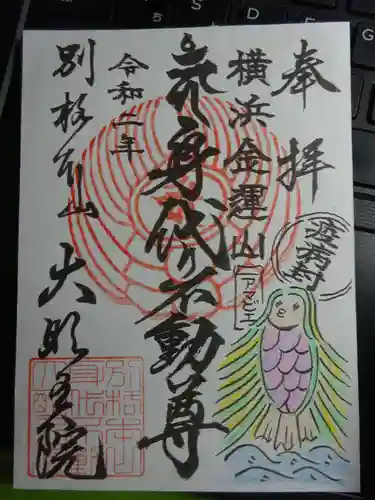 奉拝
横浜金運山
疫病封
アマビエ
身代り不動尊
令和二年
別格本山
大明王院